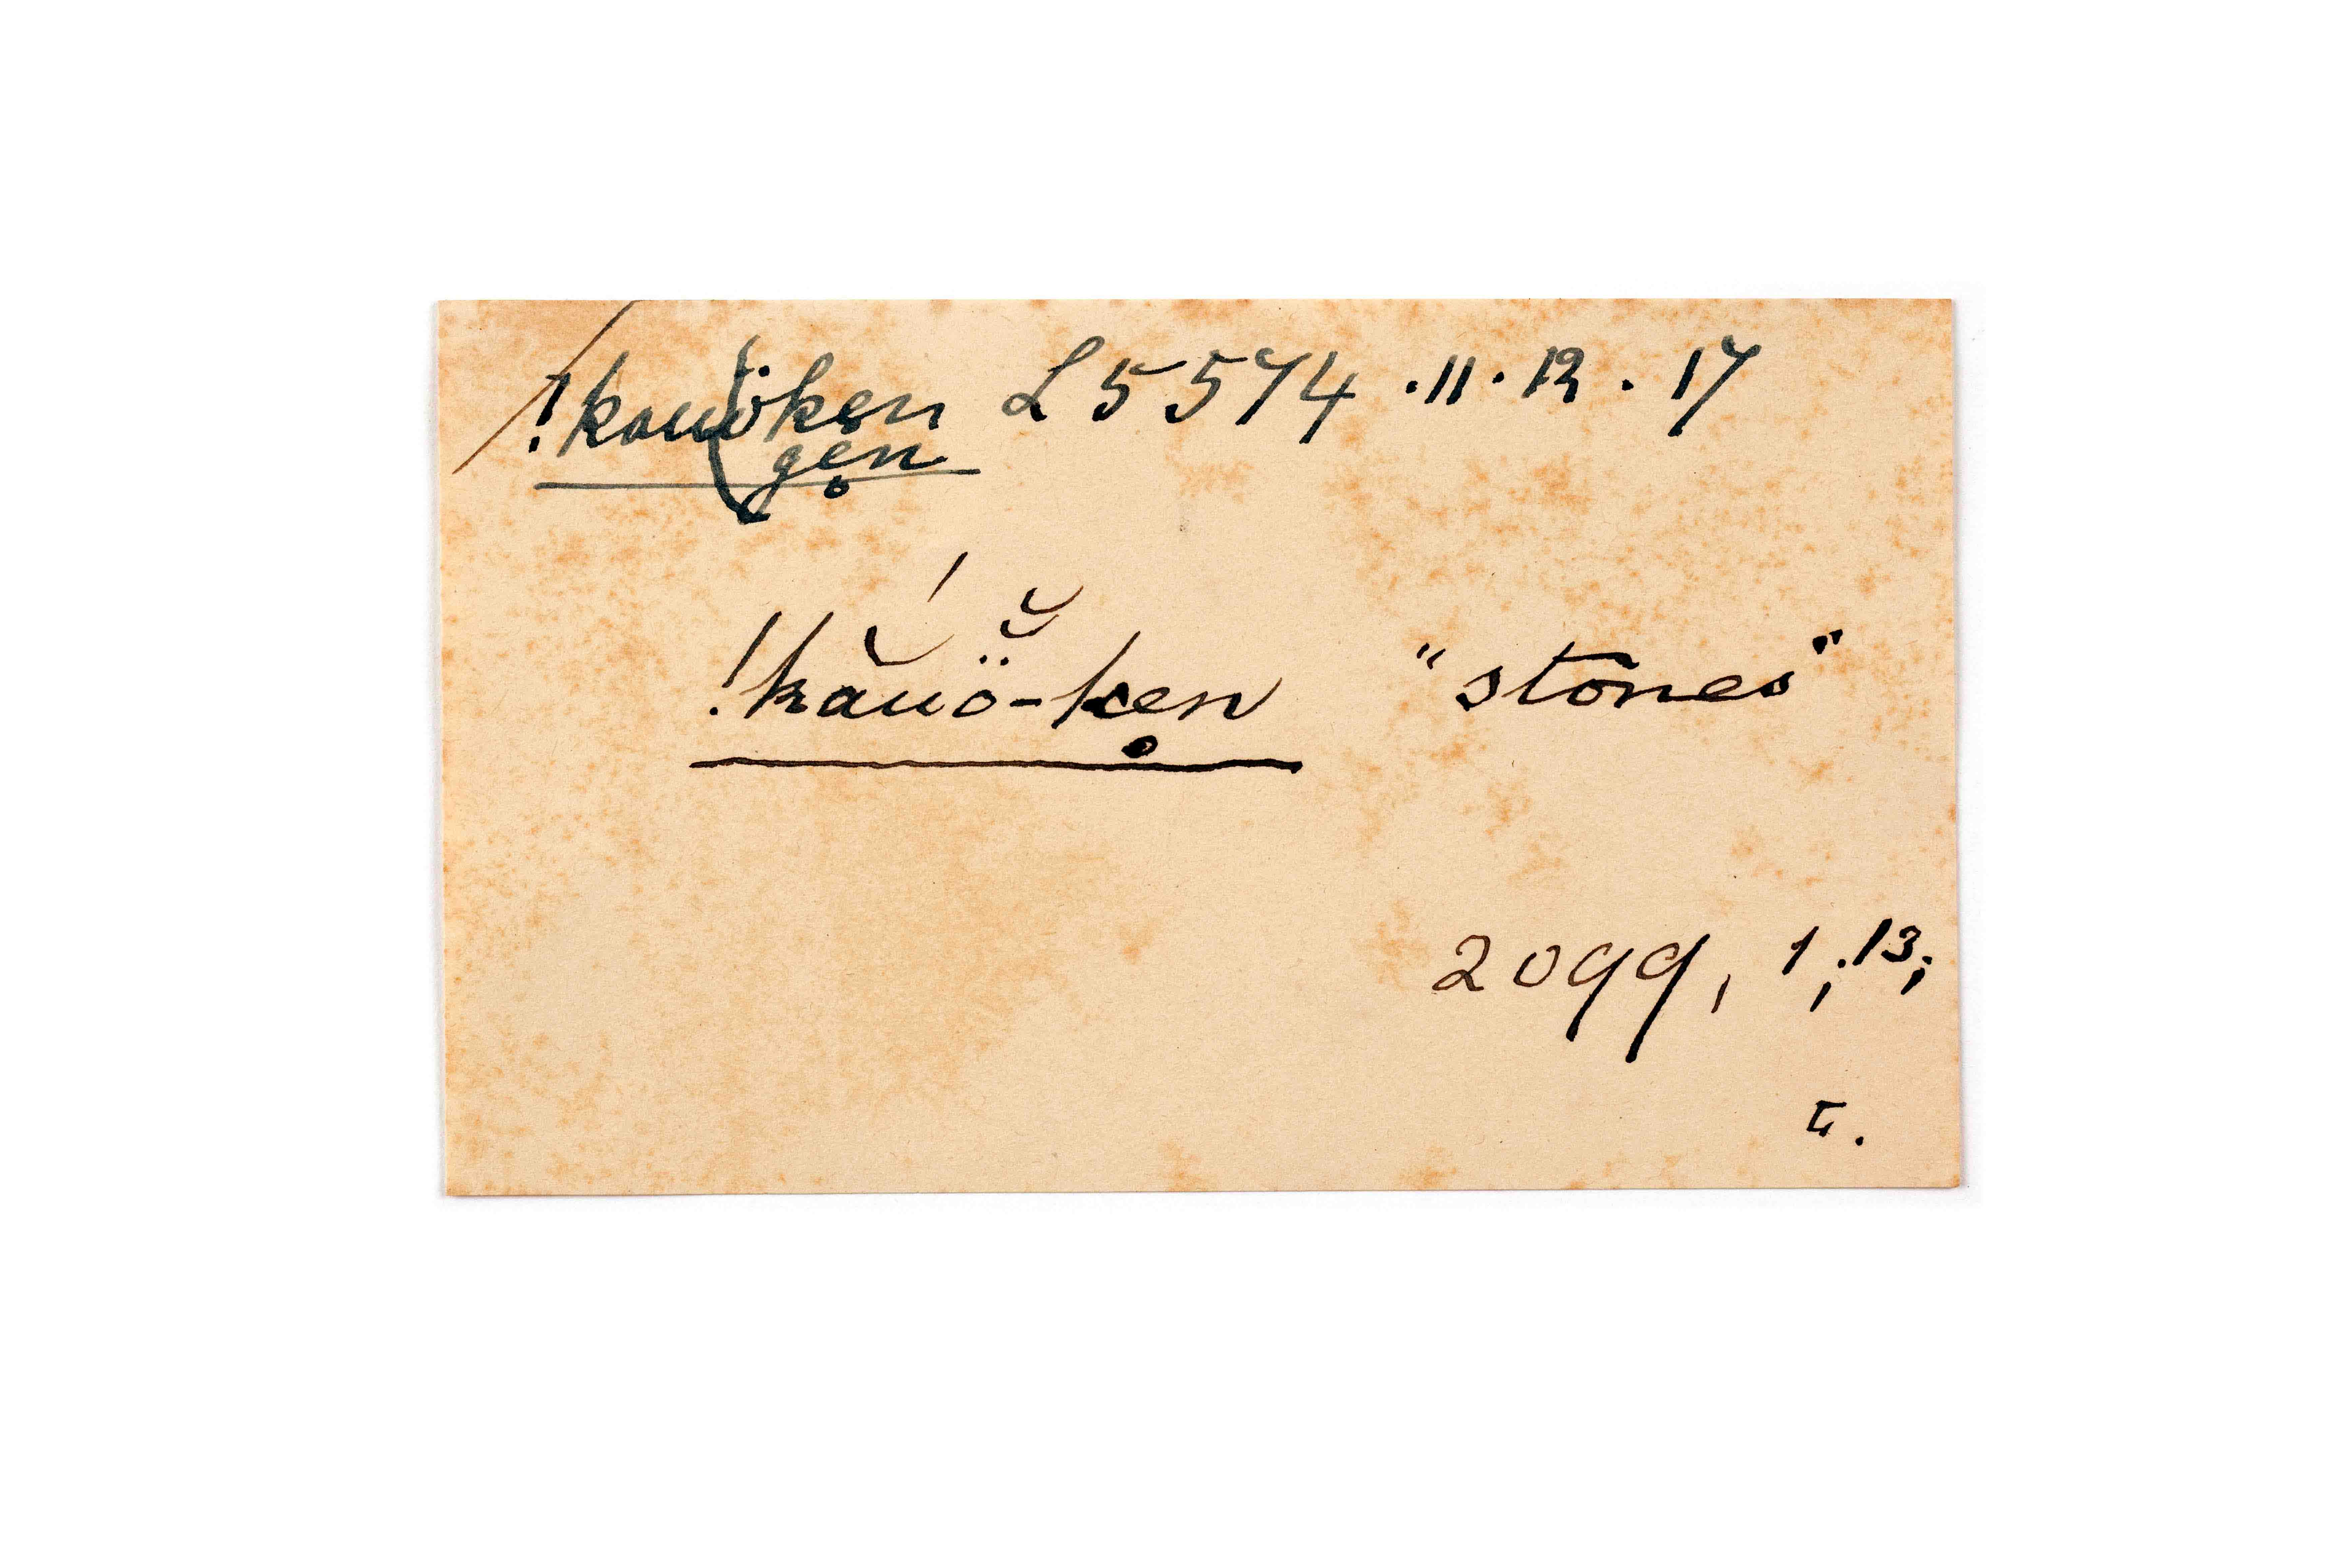 !kauöken L 5574 . 11 . 12 . 17
gẹn
!kăuö̆-kẹn "stones"
2099, 1, 13;